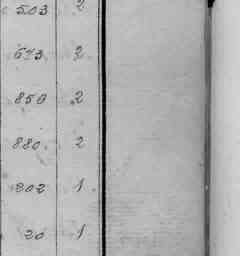 503 2
643 2
850 2
880. 2
202 1
20 1